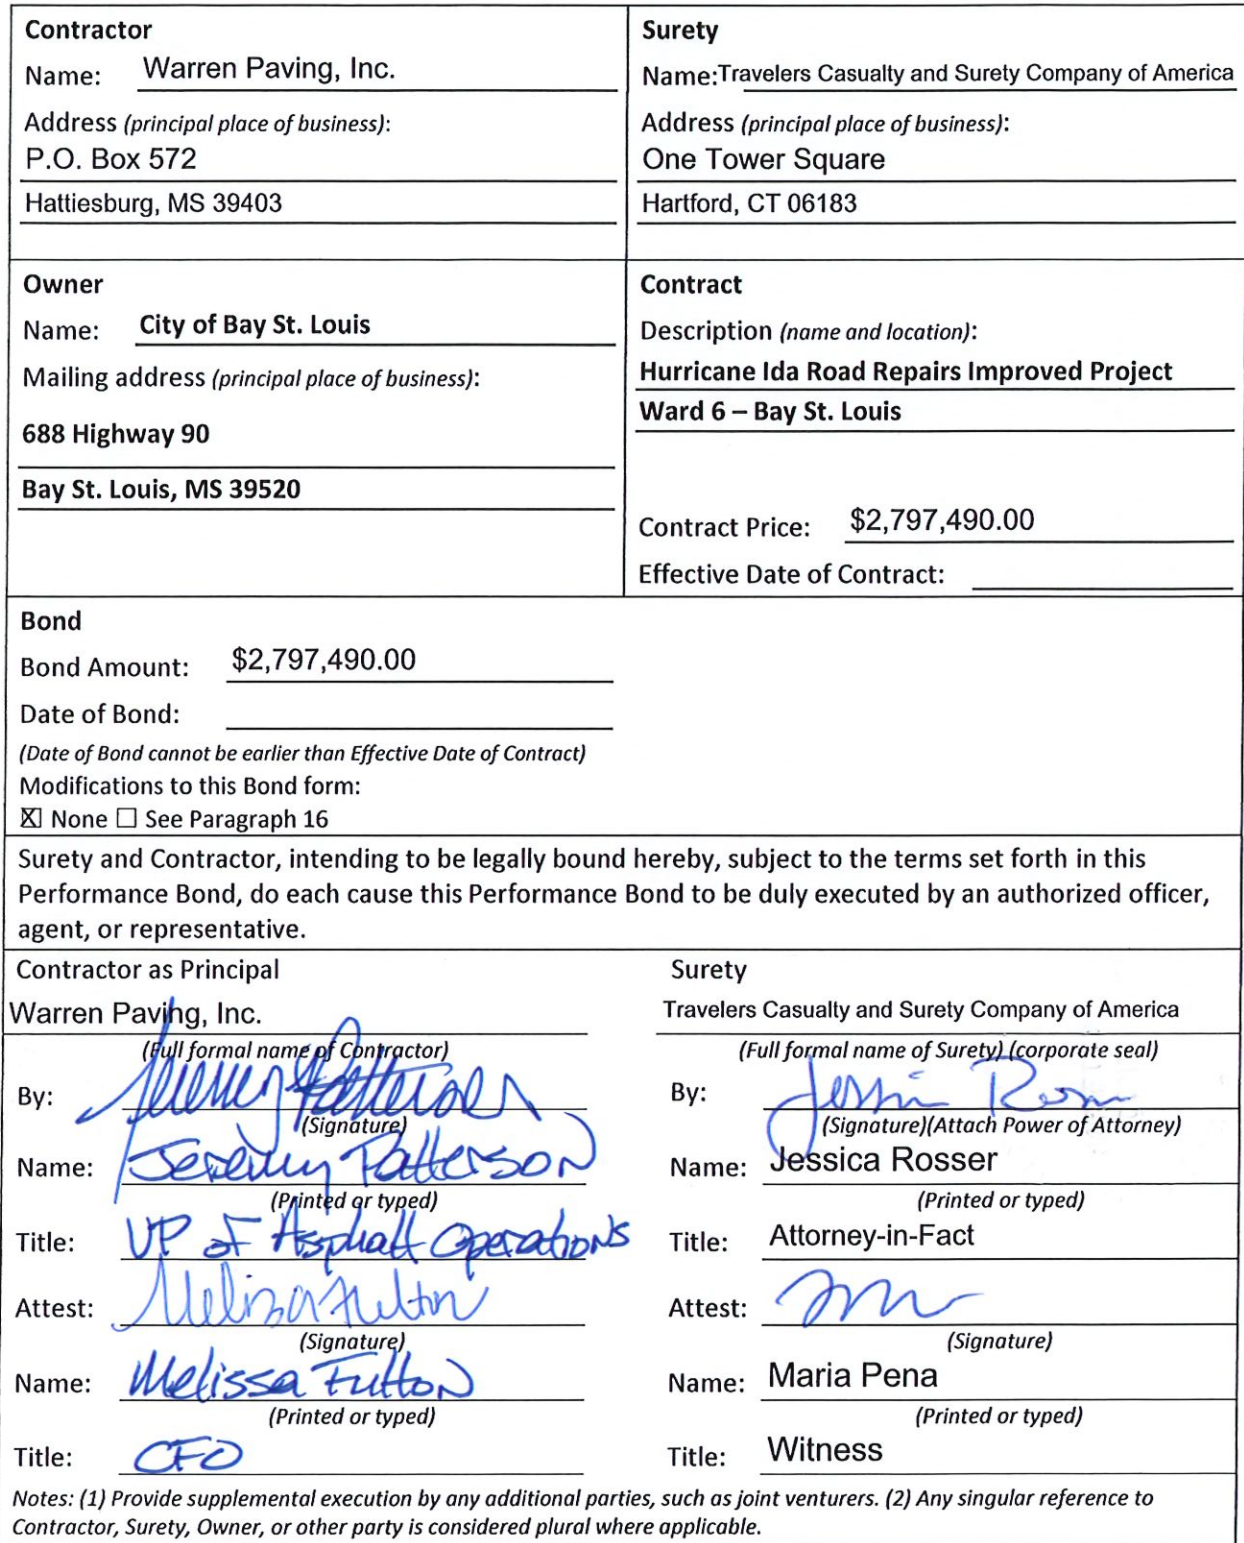 Contractor
Name: Warren Paving, Inc.
Address (principal place of business):
P.O. Box 572
Hattiesburg, MS 39403
Surety
Name:Travelers Casualty and Surety Company of America
Address (principal place of business):
One Tower Square
Hartford, CT 06183
Owner
Name: City of Bay St. Louis
Mailing address (principal place of business):
688 Highway 90
Bay St. Louis, MS 39520
Contract
Description (name and location):
Hurricane Ida Road Repairs Improved Project
Ward 6 – Bay St. Louis
Contract Price: $2,797,490.00
Effective Date of Contract:
Bond
Bond Amount: $2,797,490.00
Date of Bond:
(Date of Bond cannot be earlier than Effective Date of Contract)
Modifications to this Bond form:
☒ None ☐ See Paragraph 16
Surety and Contractor, intending to be legally bound hereby, subject to the terms set forth in this
Performance Bond, do each cause this Performance Bond to be duly executed by an authorized officer,
agent, or representative.
Contractor as Principal
Warren Paving, Inc.
(Full formal name of Contractor)
By: Jeremy Patterson
(Signature)
Name: Jeremy Patterson
(Printed or typed)
Title: VP of Asphalt Operations
Attest: Melissa Fulton
(Signature)
Name: Melissa Fulton
(Printed or typed)
Title: CFO
Surety
Travelers Casualty and Surety Company of America
(Full formal name of Surety) (corporate seal)
By: Jessica Rosser
(Signature)(Attach Power of Attorney)
Name: Jessica Rosser
(Printed or typed)
Title: Attorney-in-Fact
Attest:
(Signature)
Name: Maria Pena
(Printed or typed)
Title: Witness
Notes: (1) Provide supplemental execution by any additional parties, such as joint venturers. (2) Any singular reference to
Contractor, Surety, Owner, or other party is considered plural where applicable.